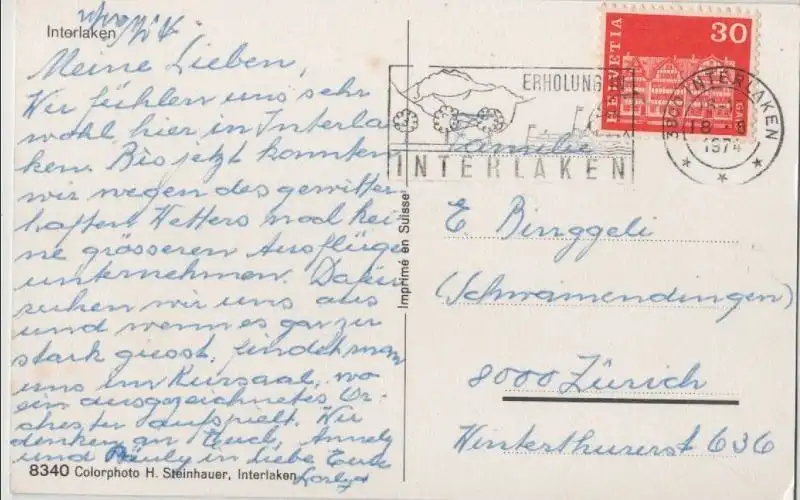 Interlaken
Meine Lieben,
Wir fühlen uns sehr
wohl hier in Interla-
ken. Bis jetzt konnten
wir wegen des gewitter-
haften Wetters noch kei-
ne grösseren Ausflüge
unternehmen. Dafür
ruhen wir uns aus
und wenn es gar zu
stark giesst, findet man
uns im Kursaal, wo
ein ausgezeichnetes Or-
chester aufspielt. Wir
denken an Euch,
und in Liebe Eure
8340 Colorphoto H. Steinhauer, Interlaken
Imprimé en Suisse
ERHOLUNG
INTERLAKEN
HELVETIA
30
3800 INTERLAKEN
1974
Familie
E. Binggeli
(Schwamendingen)
8000 Zürich
Winterthurerst 636